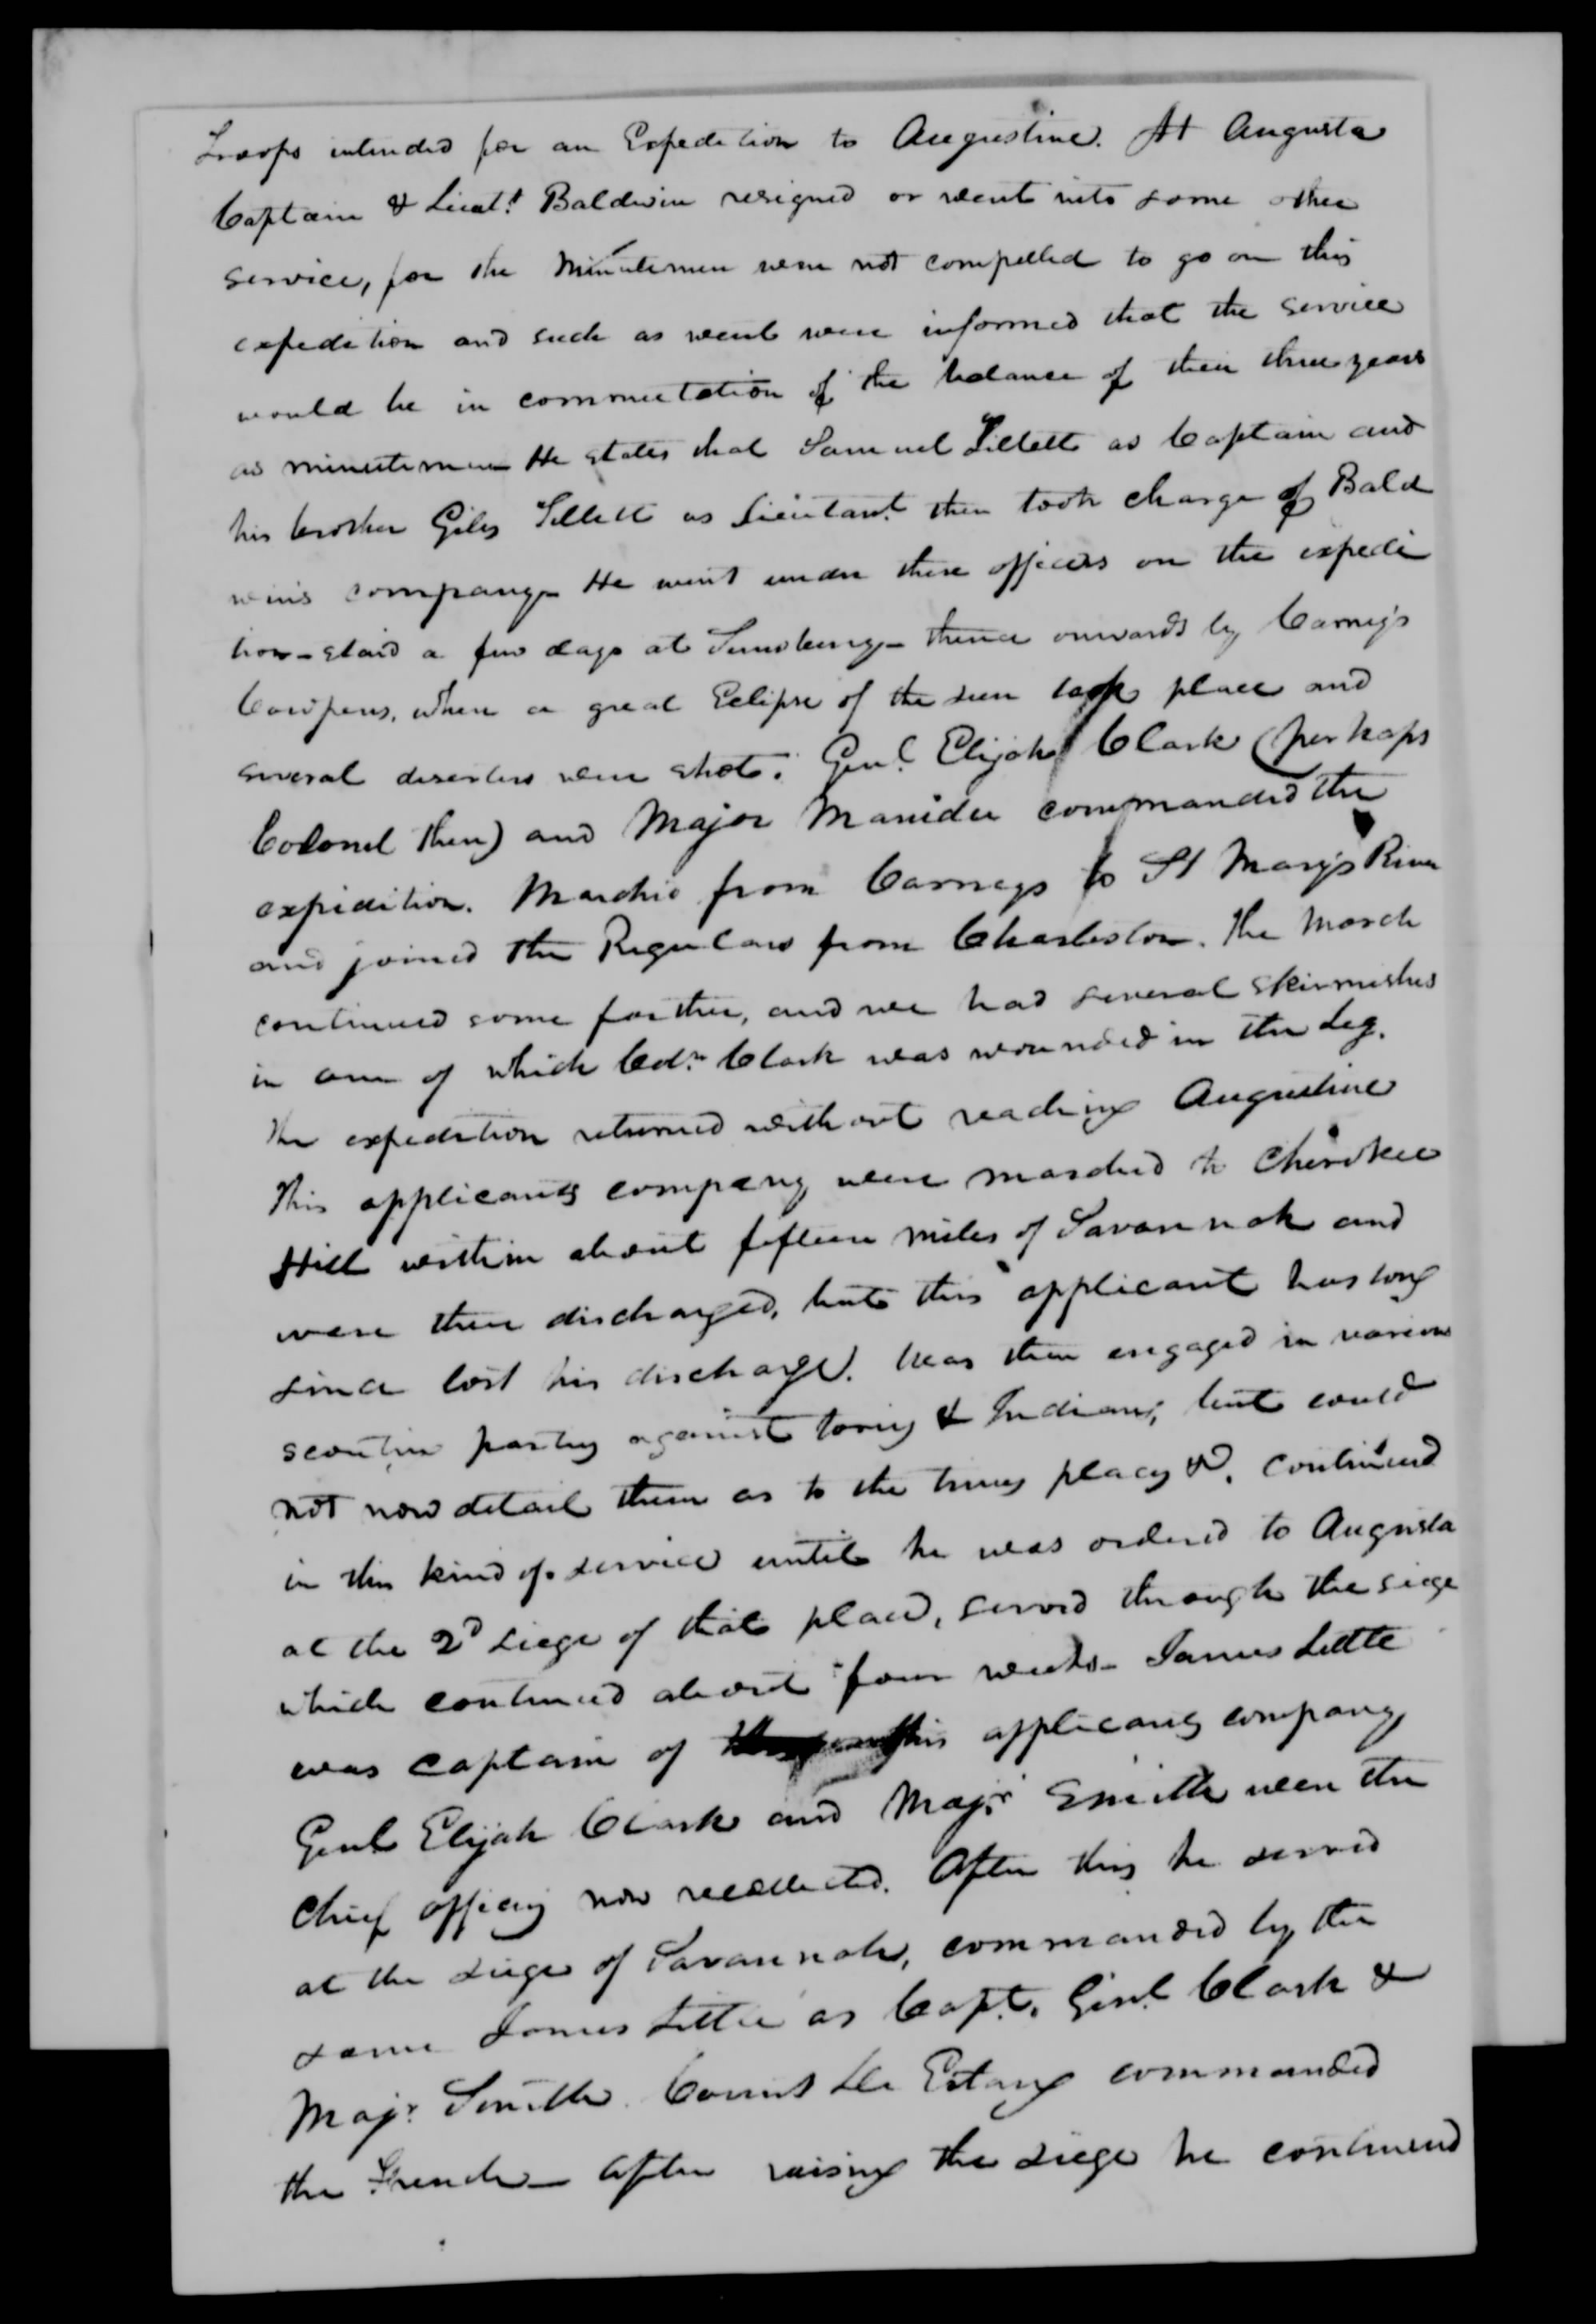 Troops intended for an Expedition to Augustine. At Augusta
Captain & Lieut.t Baldwin resigned or went into some other
service, for the Minutemen were not compelled to go on this
expedition and such as went were informed that the service
would be in commutation of the balance of their three years
as minutemen He states that Samuel Tillett as Captain and
his brother Giles Tillett as Lieutant then took charge of Bald
wins company - He went under these officers on the expedi
tion - staid a few days at Sunsbury - thence onwards by Carneys
Cowpens, when a great Eclipse of the sun took place and
several deserters were shot. Genl. Elijah Clark (perhaps
Colonel then) and Major commanded the
expedition. Marchd from Carneys to St Marys River
and joined the Regulars from Charleston. The march
continued some farther, and we had several skirmishes
in one of which Col. Clark was wounded in the Leg.
The expedition returned without reaching Augustine
This applicants company were marched to Cherokee
Hill within about fifteen miles of Savannah and
were then discharged, but this applicant has long
since lost his discharge. Was then engaged in various
scouting parties against tories & Indians, but could
not now detail them as to the times places &c. continued
in this kind of service until he was ordered to Augusta
at the 2d siege of that place, served through the siege
which continued about four weeks - James Little
was captain of this applicants company
Genl Elijah Clark and Majr. Smith were the
chief officers now recollected. After this he served
at the siege of Savannah, commanded by the
same James Little as Capt. Genl Clark &
Majr. Smith. Count De Estang commanded
the French - After raising the siege he continued